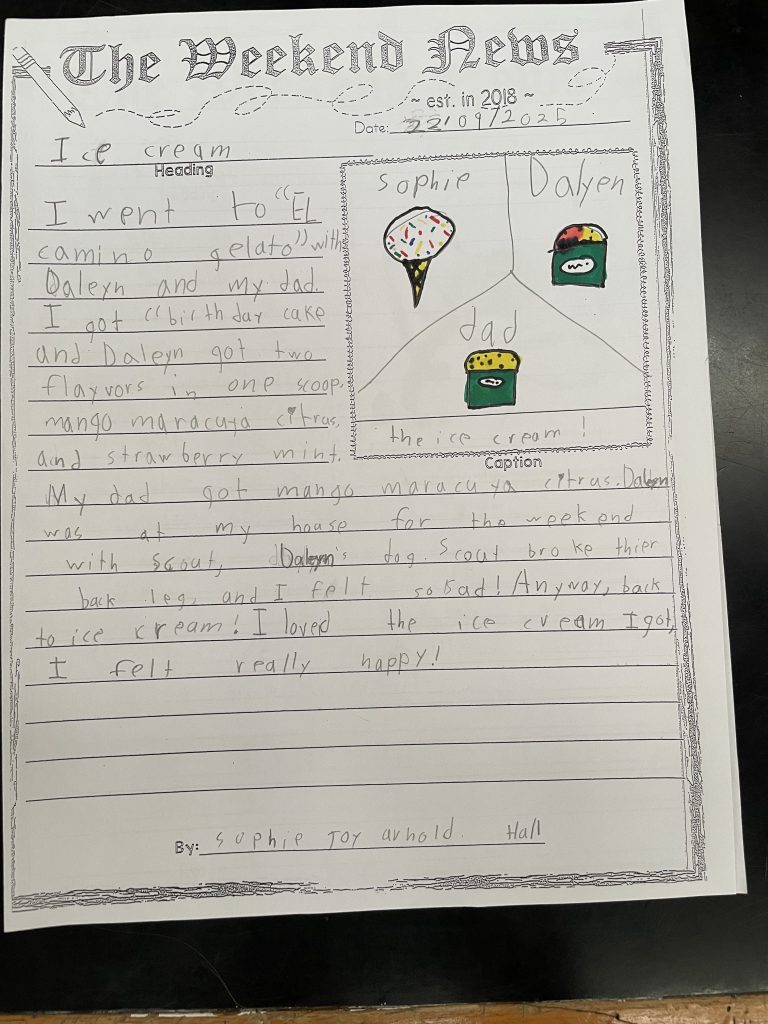 The Weekend News
~ est. in 2018 ~
Date: 22/09/2025
Ice cream
Heading
I went to "EL
camino gelato" with
Daleyn and my dad.
I got "birthday cake
and Daleyn got two
flayvors in one scoop,
mango maracuya citrus,
and strawberry mint.
My dad got mango maracuya citrus. Daleyn
was at my house for the weekend
with scout, Daleyn's dog. Scout broke thier
back leg, and I felt so bad! Anyway, back
to ice cream! I loved the ice cream I got,
I felt really happy!
By: Sophie Joy arnold Hall
Sophie
Dalyen
dad
the ice cream!
Caption